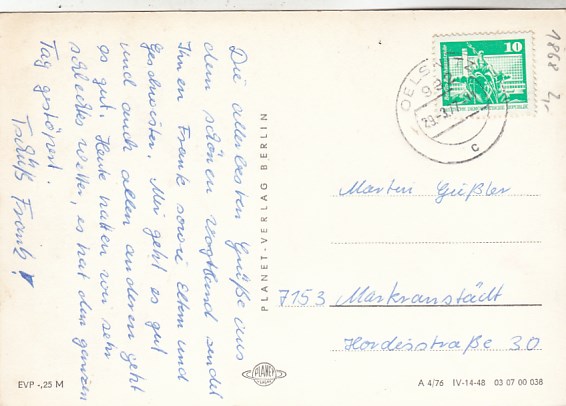 Die allerbesten Grüße aus
dem schönen Vogtland sendet
Ihnen Frank sowie Eltern und
Geschwister. Mir geht es gut
und auch allen anderen geht
es gut. Heute hatten wir sehr
schlechtes Wetter, es hat den ganzen
Tag gestöbert.
Tschüß Frank!
PLANET-VERLAG BERLIN
EVP -,25 M
PLANET
VERLAG
10
OELS
29.-3.77
c
1868
Martin Güßler
7153 Markranstädt
Hordisstraße 30
A 4/76 IV-14-48 03 07 00 038